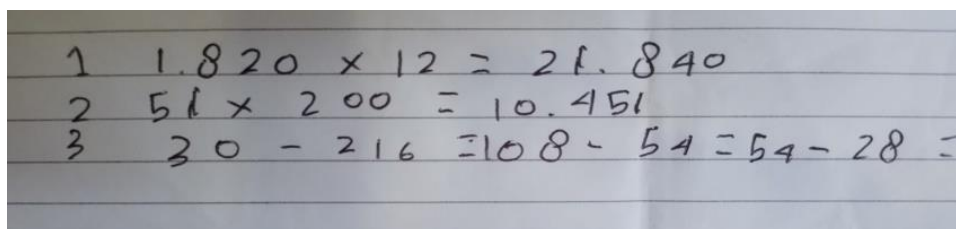 1 1.820 x 12 = 21.840
2 51 x 200 = 10.451
3 30 - 216 = 108 - 54 = 54 - 28 =